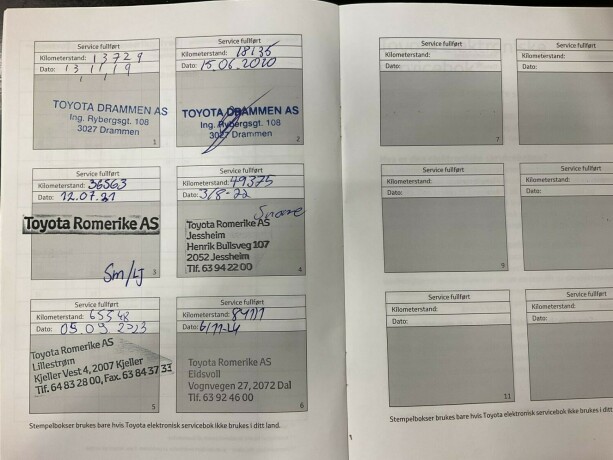 Service fullført
Kilometerstand: 13729
Dato: 13 11 19
TOYOTA DRAMMEN AS
Ing. Rybergsgt. 108
3027 Drammen
1
Service fullført
Kilometerstand: 18135
Dato: 15.06.2020
TOYOTA DRAMMEN AS
Ing. Rybergsgt. 108
3027 Drammen
2
Service fullført
Kilometerstand: 36563
Dato: 12.07.21
Toyota Romerike AS
Sm/LJ
3
Service fullført
Kilometerstand: 49375
Dato: 3/8-22
Toyota Romerike AS
Jessheim
Henrik Bullsveg 107
2052 Jessheim
Tlf. 63 94 22 00
4
Service fullført
Kilometerstand: 65548
Dato: 05.09.2023
Toyota Romerike AS
Lillestrøm
Kjeller Vest 4, 2007 Kjeller
Tlf. 64 83 28 00, Fax. 63 84 37 33
5
Service fullført
Kilometerstand:
Dato: 6/11-24
Toyota Romerike AS
Eidsvoll
Vognvegen 27, 2072 Dal
Tlf. 63 92 46 00
6
Stempelbokser brukes bare hvis Toyota elektronisk servicebok ikke brukes i ditt land.
Service fullført
Kilometerstand:
Dato:
7
Service fullført
Kilometerstand:
Dato:
Service fullført
Kilometerstand:
Dato:
9
Service fullført
Kilometerstand:
Dato:
Service fullført
Kilometerstand:
Dato:
11
Service fullført
Kilometerstand:
Dato:
Stempelbokser brukes bare hvis Toyota elektronisk servicebok ikke brukes i ditt